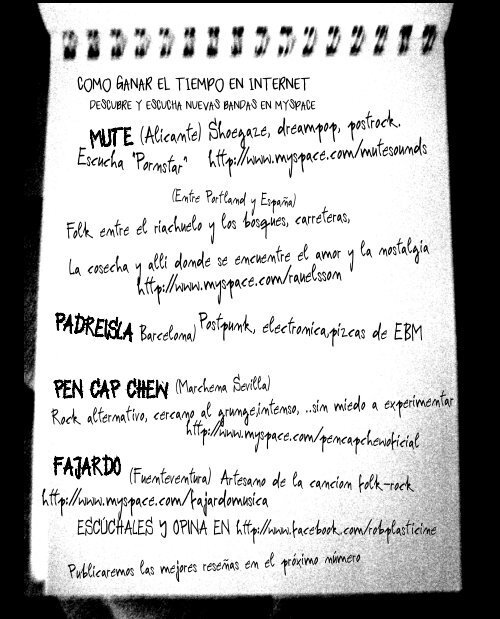 COMO GANAR EL TIEMPO EN INTERNET
DESCUBRE Y ESCUCHA NUEVAS BANDAS EN MYSPACE
MUTE (Alicante) Shoegaze, dreampop, postrock.
Escucha "Pornstar" http://www.myspace.com/mutesounds
(Entre Portland y España)
Folk entre el riachuelo y los bosques, carreteras,
La cosecha y alli donde se encuentre el amor y la nostalgia
http://www.myspace.com/rauelsson
PADREISLA Barcelona) Postpunk, electronica,pizcas de EBM
PEN CAP CHEW (Marchena Sevilla)
Rock alternativo, cercano al grunge,intenso, ..sin miedo a experimentar
http://www.myspace.com/pencapchewoficial
FAJARDO (Fuenteventura) Artesano de la cancion folk-rock
http://www.myspace.com/fajardomusica
ESCÚCHALES Y OPINA EN http://www.facebook.com/robplasticine
Publicaremos las mejores reseñas en el próximo numero